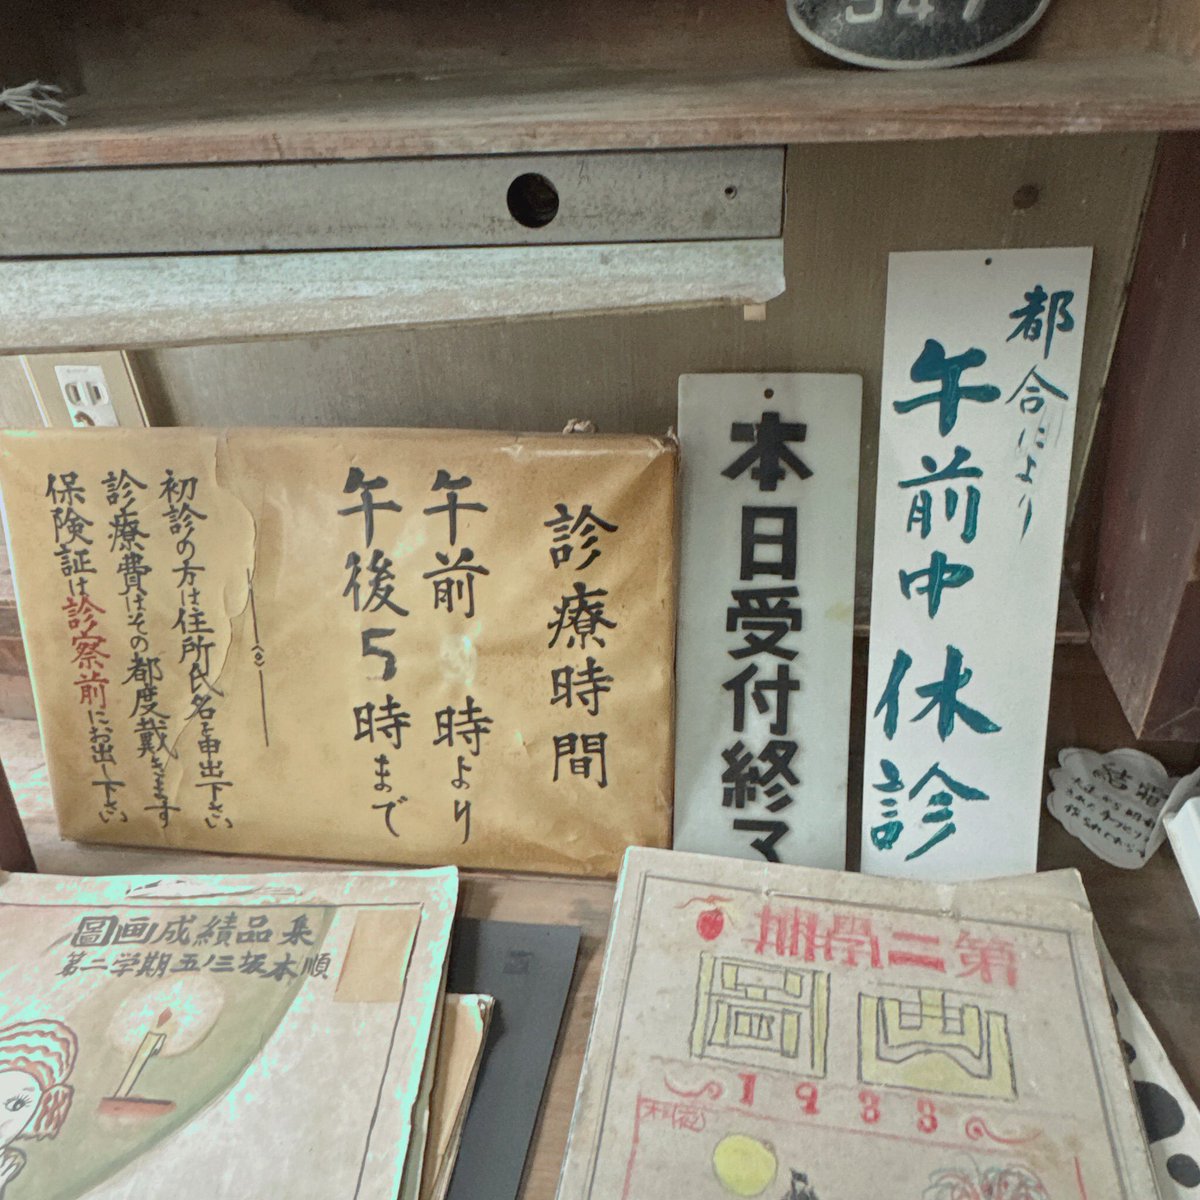 547
都合により
午前中休診
本日受付終了
診療時間
午前 時より
午後5時まで
初診の方は住所氏名を申出下さい
診療費はその都度戴きます
保険証は診察前にお出し下さい
圖画成績品集
第二学期五ノ三坂本順
第二學期
圖画
1933